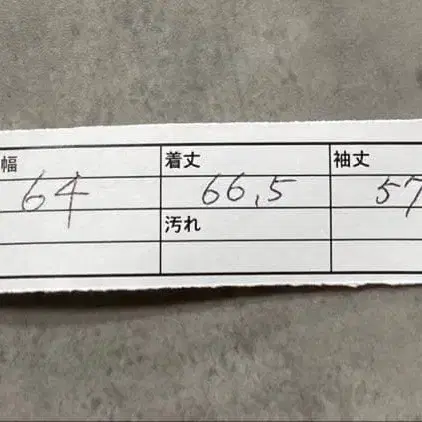 幅 着丈 袖丈
64 66,5 57
汚れ